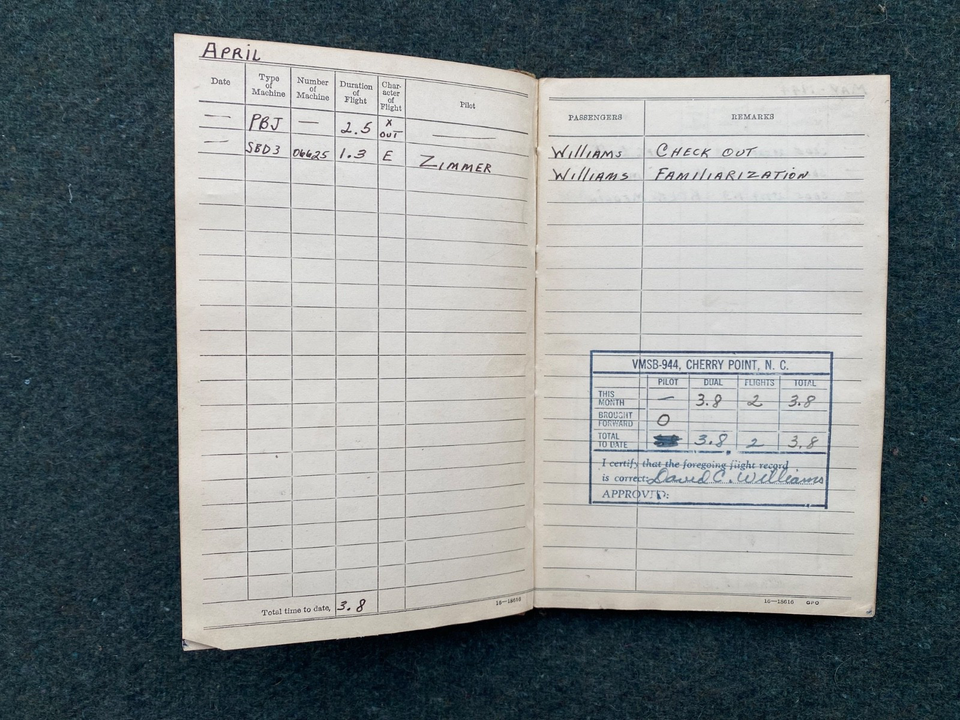 APRIL
Date Type of Machine Number of Machine Duration of Flight Char- acter of Flight Pilot
— PBJ — 2.5 X OUT —
— SBD3 06625 1.3 E ZIMMER
Total time to date, 3.8
16—15616
PASSENGERS REMARKS
WILLIAMS CHECK OUT
WILLIAMS FAMILIARIZATION
VMSB-944, CHERRY POINT, N. C.
PILOT DUAL FLIGHTS TOTAL
THIS MONTH — 3.8 2 3.8
BROUGHT FORWARD O
TOTAL TO DATE 3.8 2 3.8
I certify that the foregoing flight record
is correct: David C. Williams
APPROVED:
16—15616 GPO